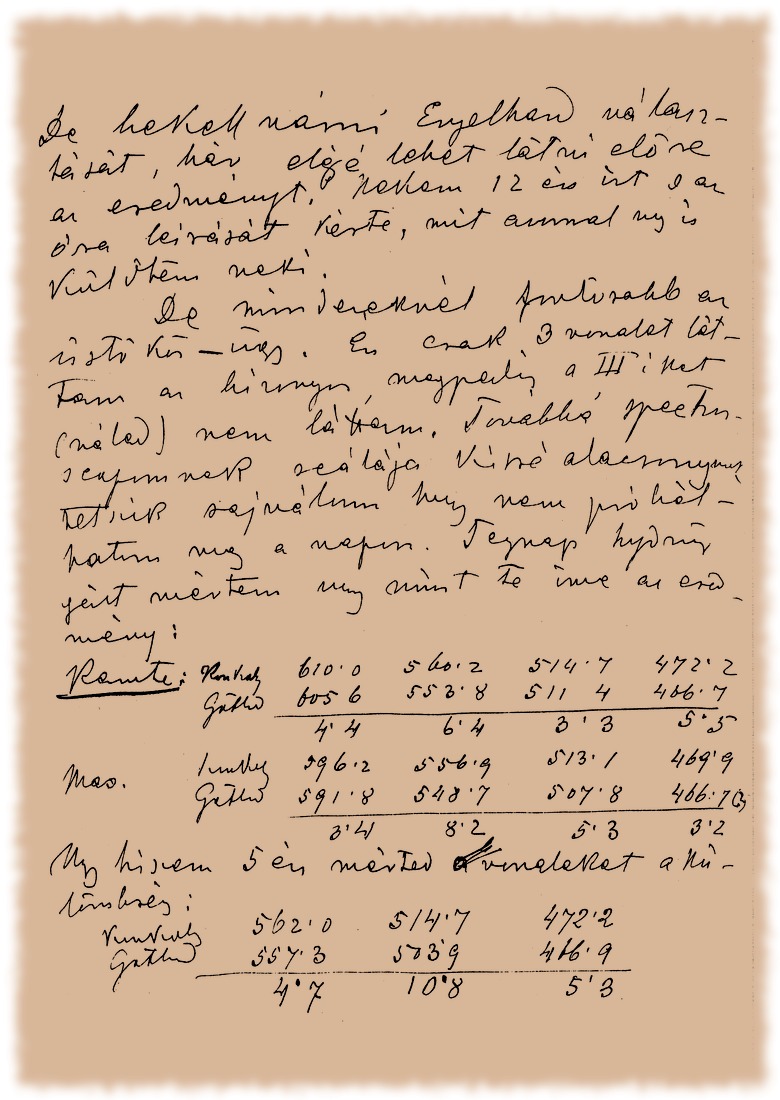 De be kell várni Engelhard válasz-
tását, bár eléggé lehet látni előre
az eredményt. Nekem 12 én írt s az
óra leirását kérte, mit azonnal meg is
küldtem neki.
De mindezeknél fontosabb az
üstökös-ügy. Én csak 3 vonalat lát-
tam az bizonyos, megpedig a III ikat
(nálad) nem láttam. Továbbá spectro-
scopomnak scálája kissé alacsonynak
tetszik sajnálom hogy nem próbál-
hatom meg a napon. Tegnap hydro
gént mértem meg mint Te íme az ered-
mény:
Kante: Konkoly 610·0 560·2 514·7 472·2
Gothard 605 6 553·8 511 4 466·7
4·4 6·4 3·3 5·5
Max. Konkoly 596·2 556·9 513·1 469·9
Gothard 591·8 548·7 507·8 466·7
3·4 8·2 5·3 3·2
Ugy hiszem 5 én mérted a vonalakat a kü-
lömbség:
Konkoly 562·0 514·7 472·2
Gothard 557·3 503·9 466·9
4·7 10·8 5·3